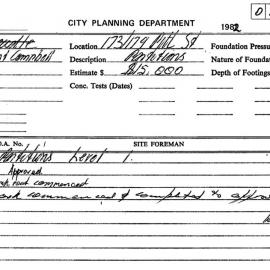 D.
CITY PLANNING DEPARTMENT 1982
Location 173/179 Pitt St Foundation Pressu
Campbell Description Partitions Nature of Founda
Estimate $ $15,000 Depth of Footings
Conc. Tests (Dates)
D.A. No. SITE FOREMAN
Partitions Level 1.
Approved
not commenced
work commenced & completed to appro